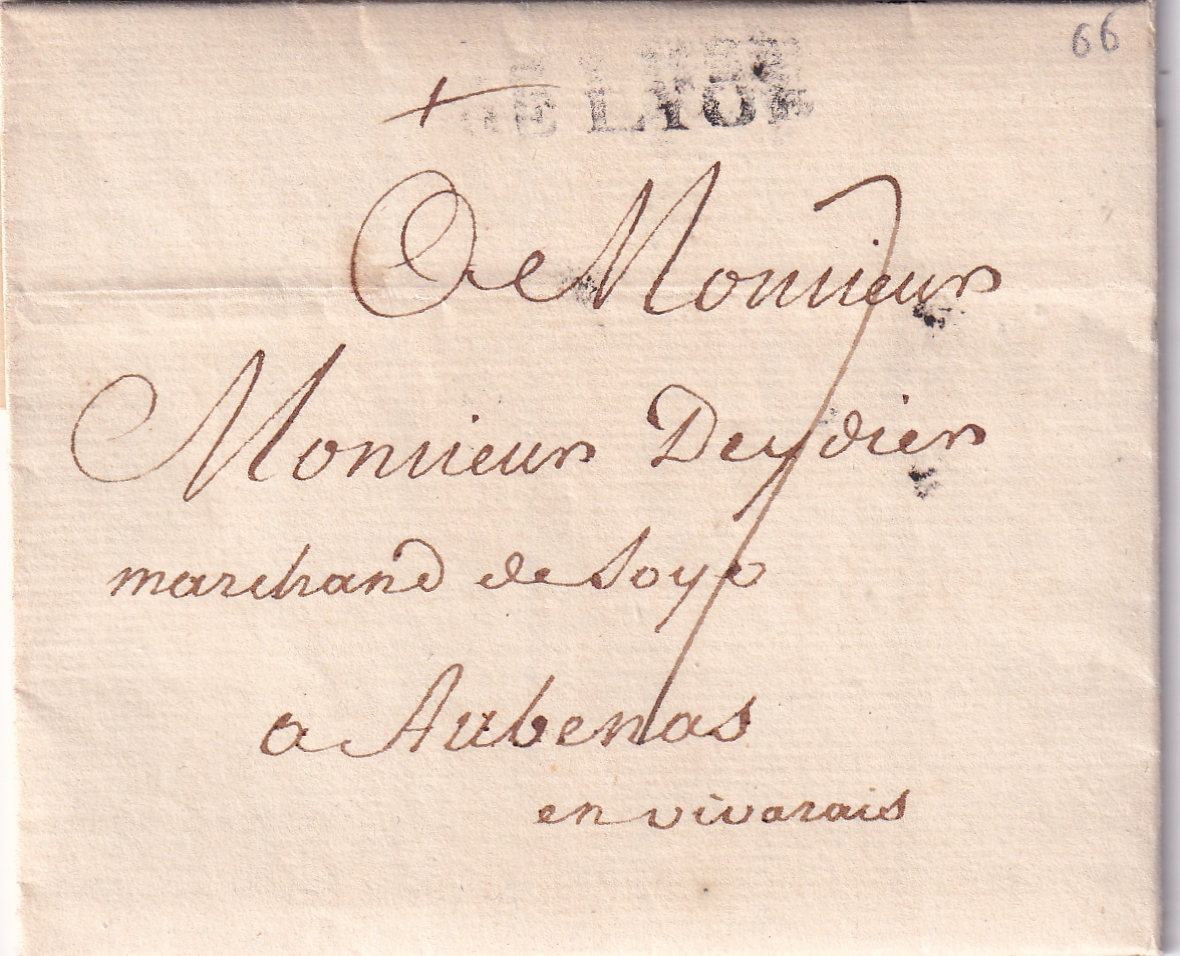 66
DE LYON
A Monsieur
Monsieur Deydier
marchand de Soye
a Aubenas
en vivarais
7